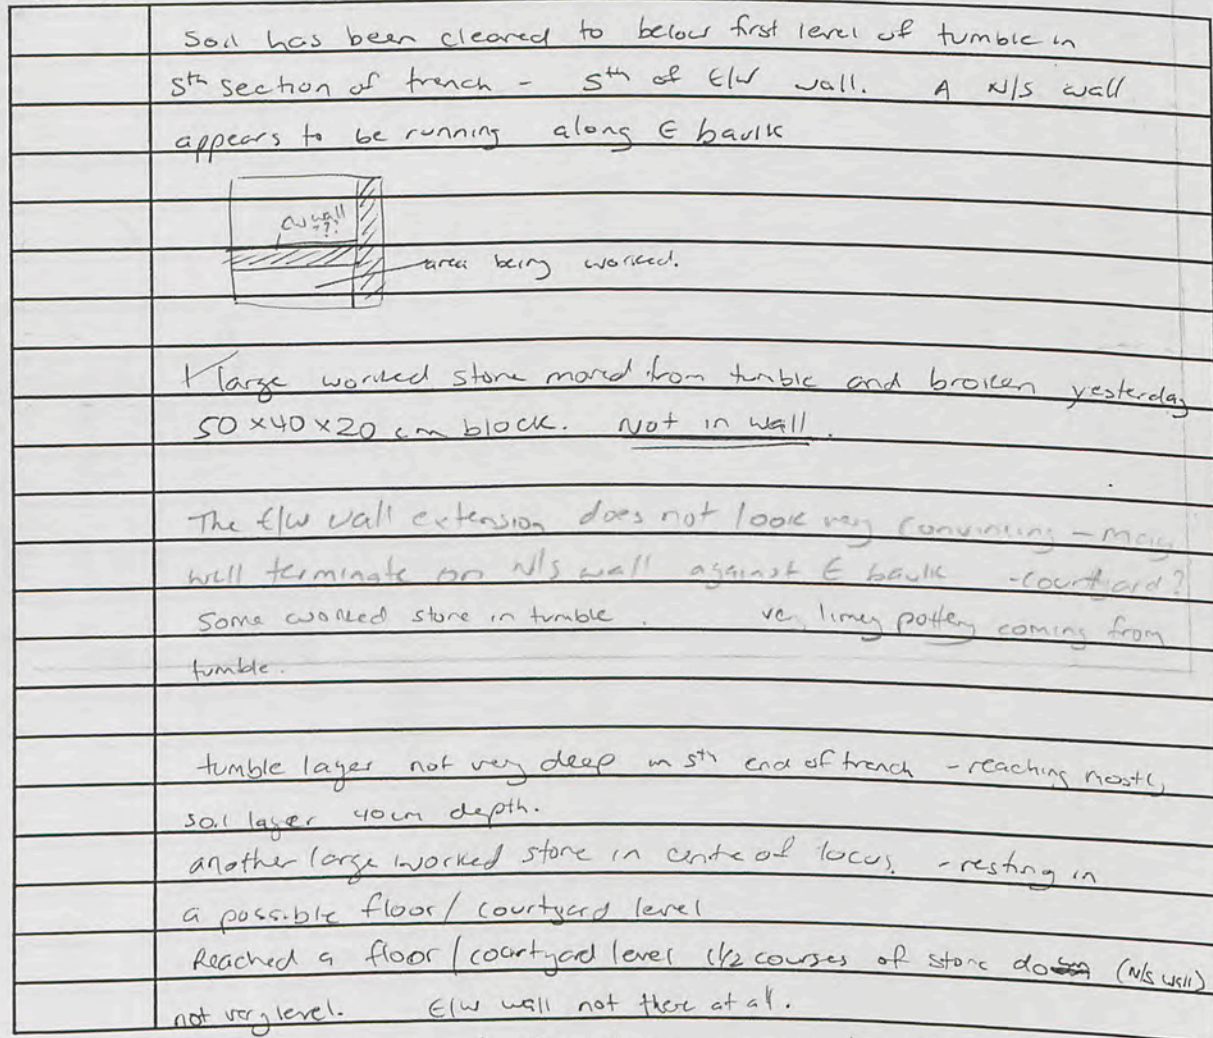 Soil has been cleared to below first level of tumble in
Sth section of trench - Sth of E/W wall. A N/S wall
appears to be running along E baulk
E/W wall
??
area being worked.
1 large worked stone moved from tumble and broken yesterday
50 x 40 x 20 cm block. Not in wall.
The E/W wall extension does not look very convincing - may
well terminate on N/S wall against E baulk - courtyard?
Some worked stone in tumble. very limey pottery coming from
tumble.
tumble layer not very deep in sth end of trench - reaching mostly
soil layer 40cm depth.
another large worked stone in centre of locus, - resting in
a possible floor/courtyard level
Reached a floor/courtyard level 1 1/2 courses of stone down (N/S wall)
not very level. E/W wall not there at all.